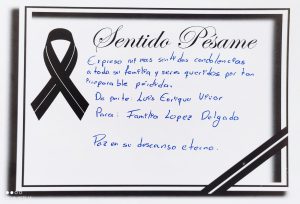 Sentido Pésame
Expreso mis mas sentidas condolencias
a toda su familia y seres queridos por tan
irreparable pérdida.
De parte: Luis Enrique
Para: Familia Lopez Delgado
Paz en su descanso eterno.